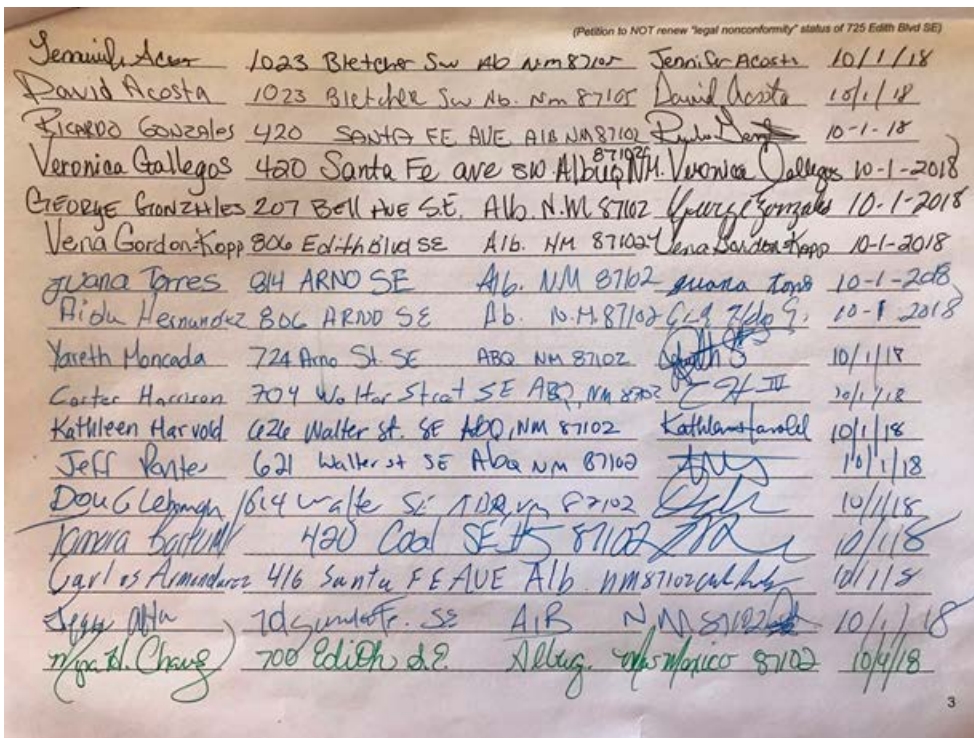 (Petition to NOT renew "legal nonconformity" status of 725 Edith Blvd SE)
Jennifer Acosta 1023 Bletcher SW Ab Nm 87105 Jennifer Acosta 10/1/18
David Acosta 1023 Bletcher SW Ab. Nm 87105 David Acosta 10/1/18
RICARDO GONZALES 420 SANTA FE AVE AlB NM 87102 10-1-18
Veronica Gallegos 420 Santa Fe ave SW Albuq NM. 87102 Veronica Gallegos 10-1-2018
GEORGE GONZALES 207 Bell AVE S.E. Alb. N.M 87102 George Gonzales 10-1-2018
Vena Gordon-Kopp 806 Edith Blvd SE Alb. NM 87102 Vena Gordon-Kopp 10-1-2018
Juana Torres 814 ARNO SE Alb. NM 87102 10-1-2018
Aida Hernandez 806 ARNO SE Ab. N.M. 87102 10-1-2018
Yareth Moncada 724 Arno St. SE ABQ NM 87102 10/1/18
Carter Harrison 704 Walter Street SE ABQ, NM 87102 10/1/18
Kathleen Harvold 626 Walter St. SE ABQ, NM 87102 Kathleen Harvold 10/1/18
Jeff 621 Walter st SE Abq NM 87102 10/1/18
Doug Lehman 614 Walte SE 87102 10/1/18
Tamera 420 Coal SE #5 87102 10/1/18
Carlos Armendarez 416 Santa FE AUE Alb. nm 87102 10/1/18
SE AlB N.M 87102 10/1/18
Chavez 700 Edith S.E. Albuq. New Mexico 87102 10/4/18
3